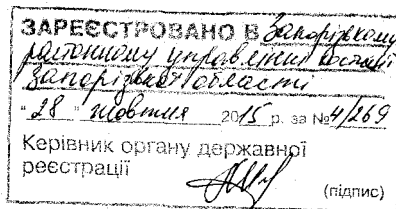 ЗАРЕЄСТРОВАНО В Запорізькому
районному управлінні юстиції
Запорізької області
"28" жовтня 2015 р. за №4/269
Керівник органу державної
реєстрації
(підпис)